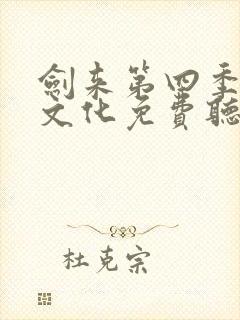 劍來第四季
文化免費聽
杜克宗